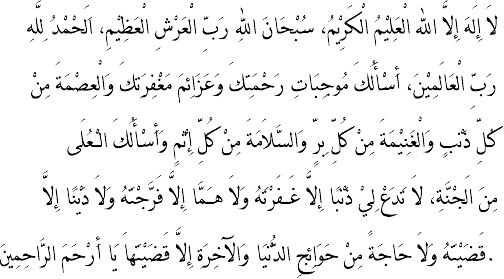 لاَ إِلَهَ إِلاَّ الله الْعَلِيْمُ الْكَرِيْمُ، سُبْحَانَ اللهِ رَبِّ الْعَرْشِ الْعَظِيْمِ، اَلْحَمْدُ لِلَّهِ
رَبِّ الْعَالَمِيْنَ، أَسْأَلُكَ مُوجِبَاتِ رَحْمَتِكَ وَعَزَائِمَ مَغْفِرَتِكَ وَالْعِصْمَةَ مِنْ
كُلِّ ذَنْبٍ وَالْغَنِيْمَةَ مِنْ كُلِّ بِرٍّ وَالسَّلاَمَةَ مِنْ كُلِّ إِثْمٍ وَأَسْأَلُكَ الْعُلَى
مِنَ الْجَنَّةِ، لاَ تَدَعْ لِيْ ذَنْبًا إِلاَّ غَفَرْتَهُ وَلاَ هَمًّا إِلاَّ فَرَّجْتَهُ وَلاَ دَيْنًا إِلاَّ
قَضَيْتَهُ وَلاَ حَاجَةً مِنْ حَوَائِجِ الدُّنْيَا وَالْآخِرَةِ إِلاَّ قَضَيْتَهَا يَا أَرْحَمَ الرَّاحِمِيْنَ.